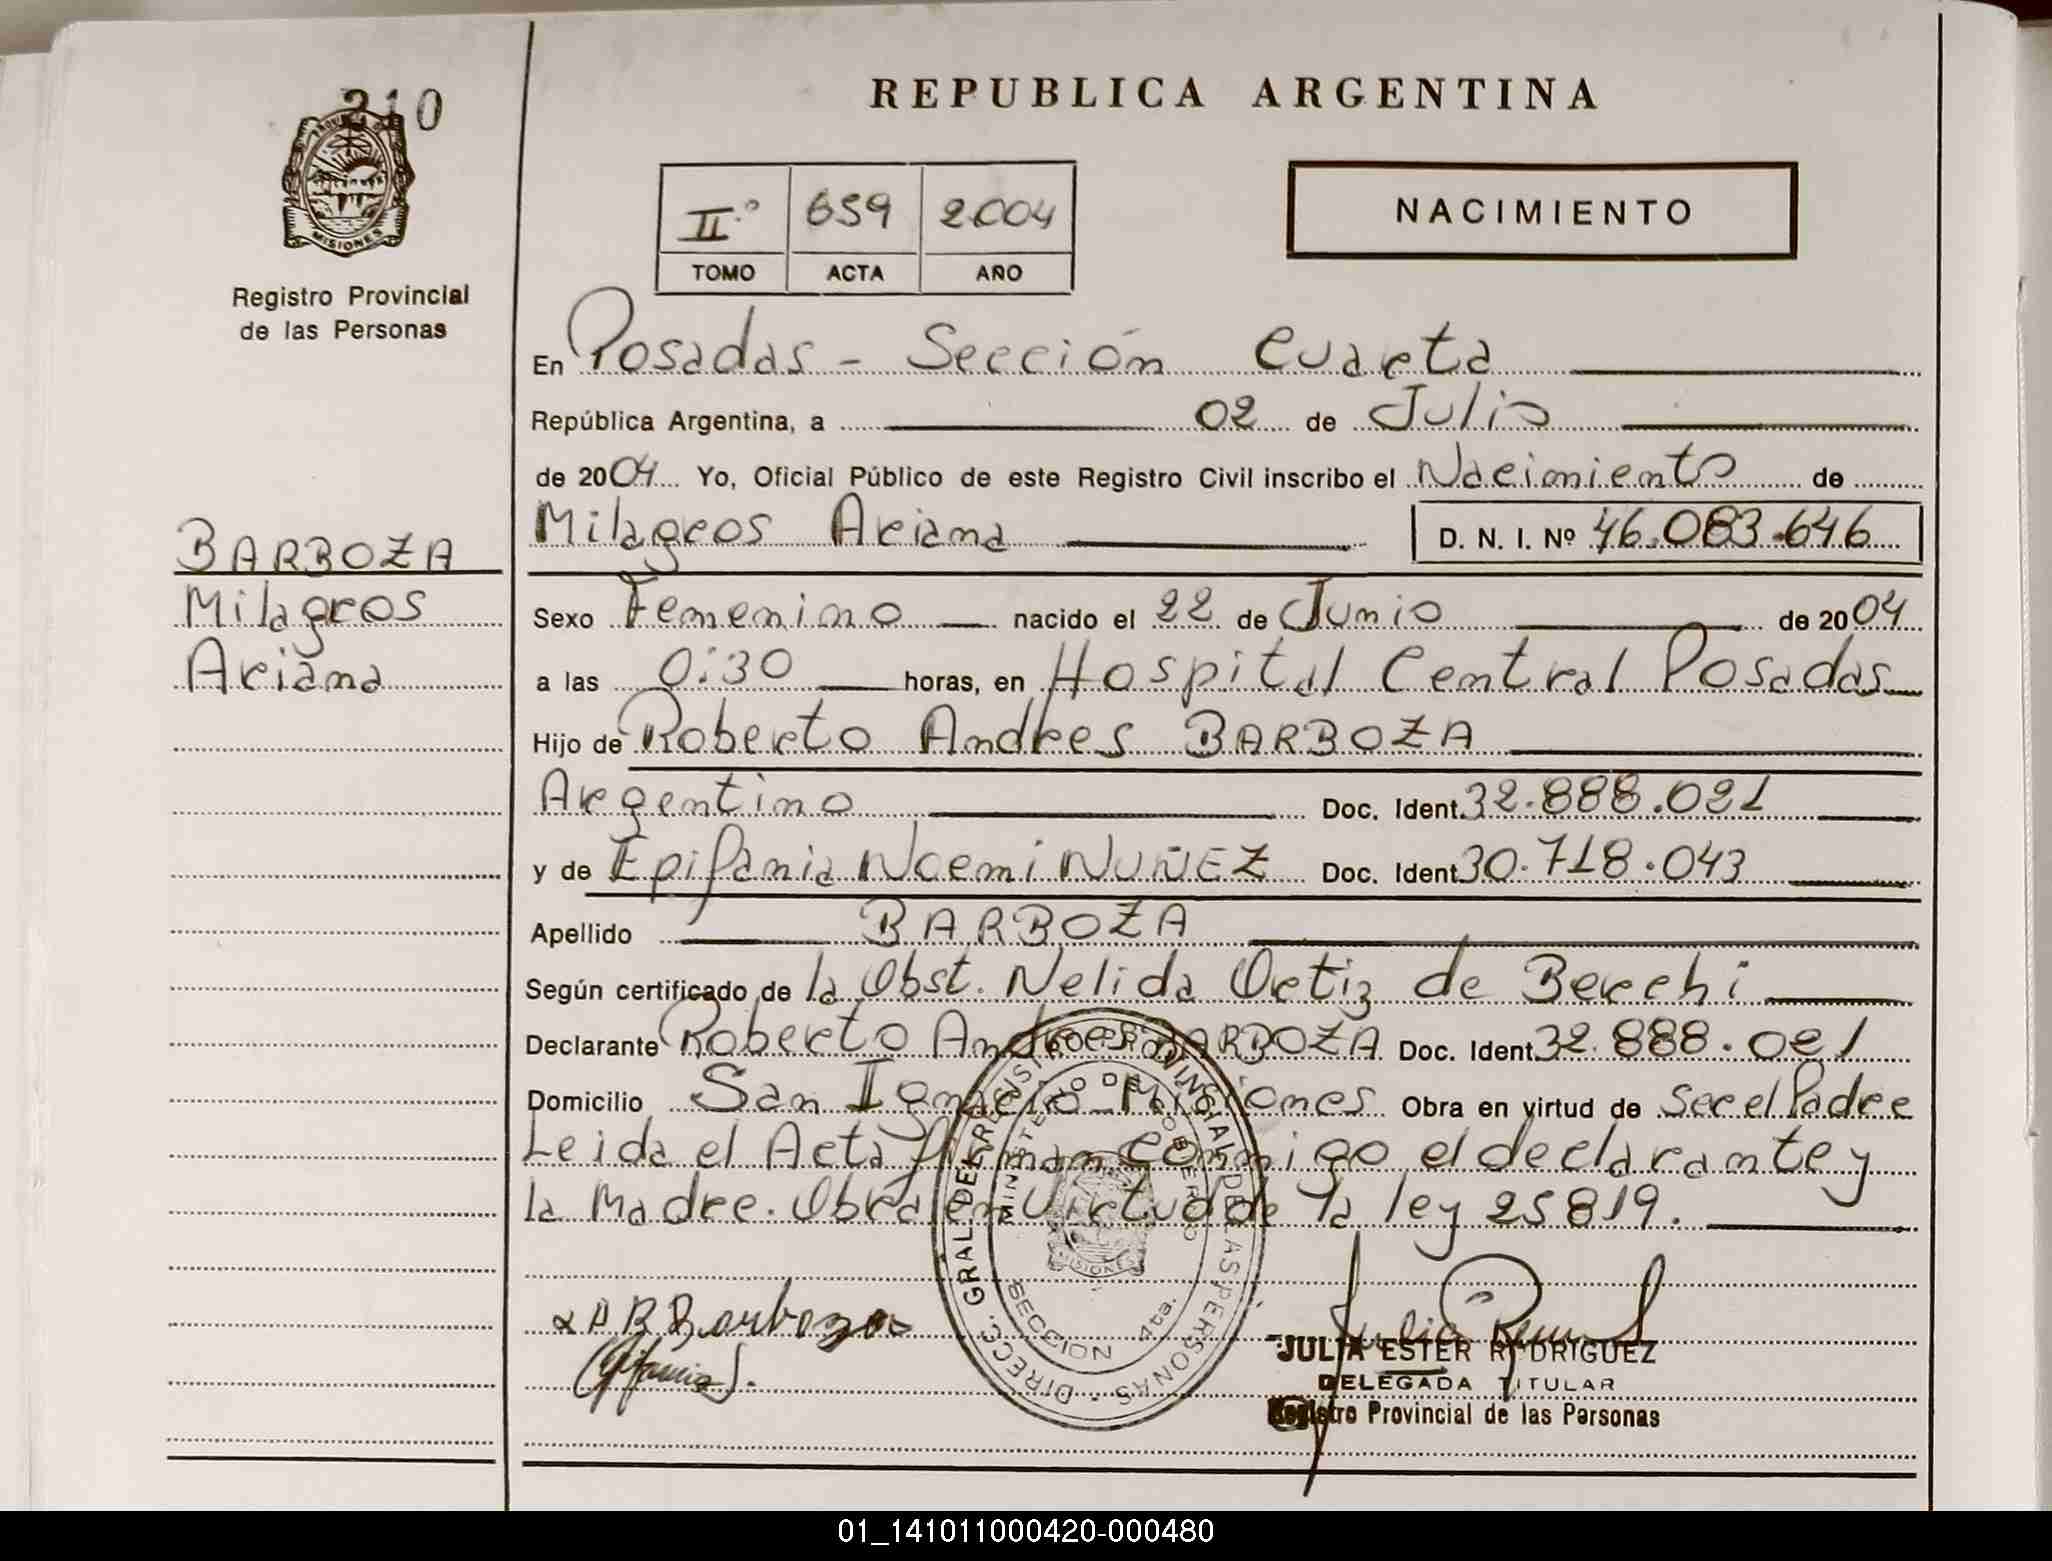 210
PROVINCIA DE
MISIONES
Registro Provincial
de las Personas
REPUBLICA ARGENTINA
II.º 659 2004
TOMO ACTA AÑO
NACIMIENTO
En Posadas - Sección Cuarta
República Argentina, a 02 de Julio
de 2004 Yo, Oficial Público de este Registro Civil inscribo el Nacimiento de
Milagros Ariana D. N. I. Nº 46.083.646
BARBOZA
Milagros
Ariana
Sexo Femenino nacido el 22 de Junio de 2004
a las 0:30 horas, en Hospital Central Posadas
Hijo de Roberto Andres BARBOZA
Argentino Doc. Ident. 32.888.021
y de Epifania Noemi NUÑEZ Doc. Ident. 30.718.043
Apellido BARBOZA
Según certificado de la Obst. Nelida Ortiz de Berchi
Declarante Roberto Andres BARBOZA Doc. Ident. 32.888.021
Domicilio San Ignacio - Misiones Obra en virtud de ser el Padre
Leida el Acta firman conmigo el declarante y
la Madre. Obra en virtud de la ley 25819.
DIRECC. GRAL. DEL REGISTRO PROVINCIAL DE LAS PERSONAS
MINISTERIO DE GOBIERNO
MISIONES
SECCION 4ta.
R Barboza
JULIA ESTER RODRIGUEZ
DELEGADA TITULAR
Registro Provincial de las Personas
01_141011000420-000480